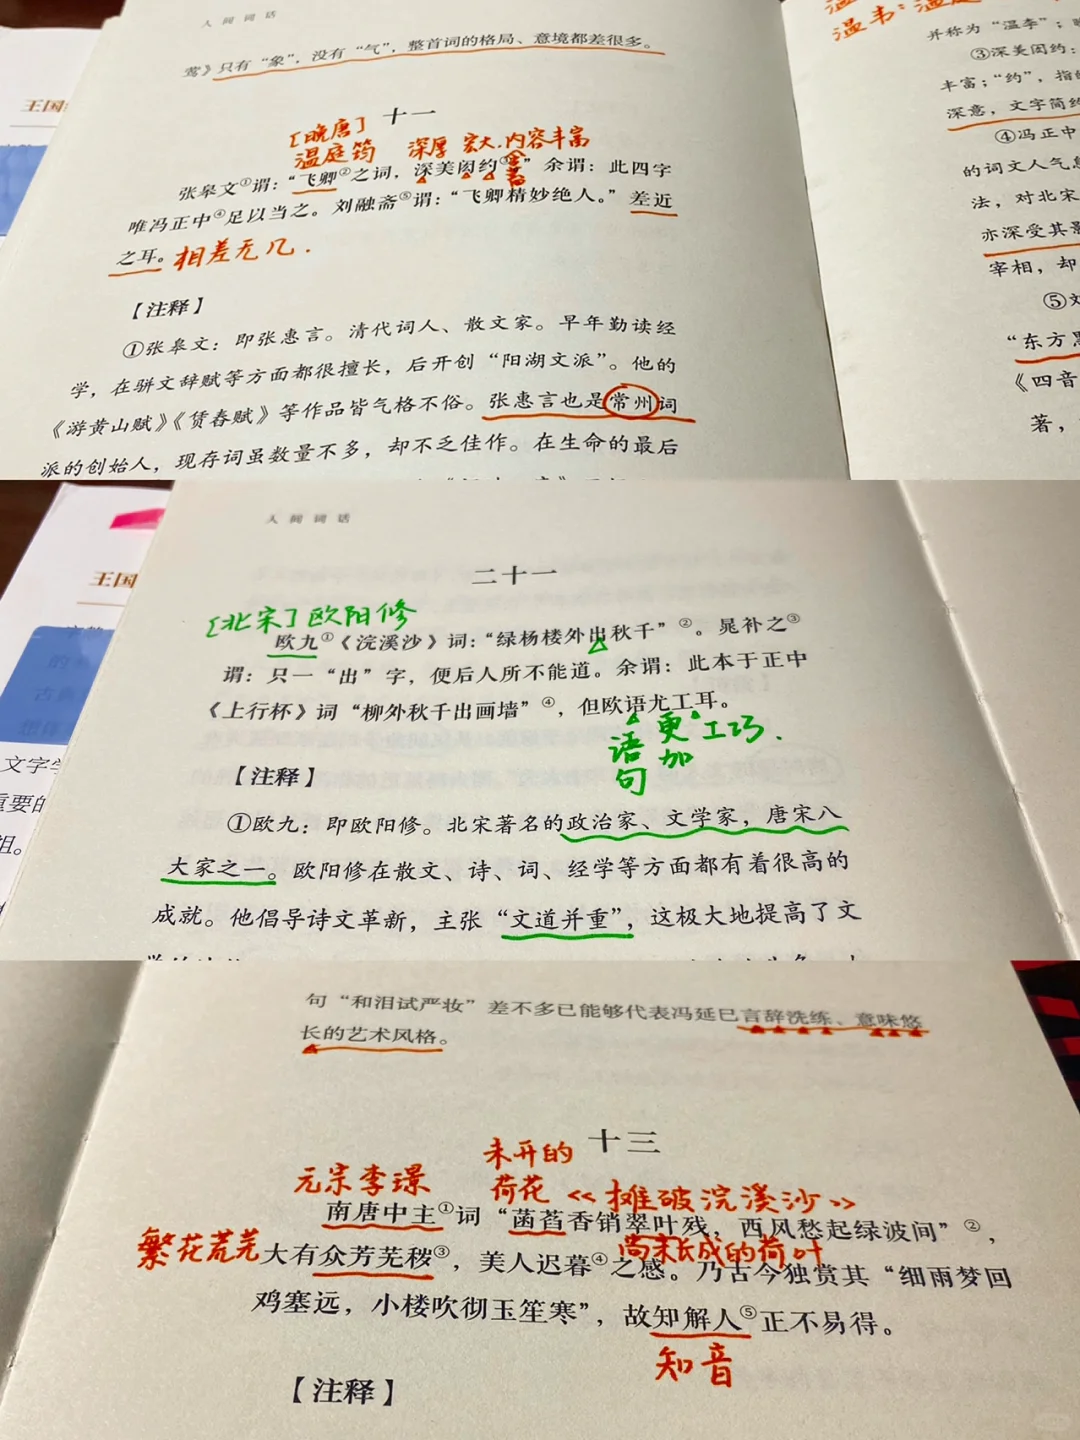 人间词话
莺》只有“象”，没有“气”，整首词的格局、意境都差很多。
十一
[晚唐]
温庭筠 深厚 宏大.内容丰富
张皋文①谓：“飞卿②之词，深美闳约③”余谓：此四字
唯冯正中④足以当之。刘融斋⑤谓：“飞卿精妙绝人。”差近
之耳。相差无几.
【注释】
①张皋文：即张惠言。清代词人、散文家。早年勤读经
学，在骈文辞赋等方面都很擅长，后开创“阳湖文派”。他的
《游黄山赋》《赁春赋》等作品皆气格不俗。张惠言也是常州词
派的创始人，现存词虽数量不多，却不乏佳作。在生命的最后
温韦：温庭
并称为“温李”；
③深美闳约：
丰富；“约”，指
深意，文字简约
④冯正中
的词文人气息
法，对北宋
亦深受其影
宰相，却
⑤刘
“东方
《四音
著，
王国
人间词话
二十一
[北宋]欧阳修
欧九①《浣溪沙》词：“绿杨楼外出秋千”②。晁补之③
谓：只一“出”字，便后人所不能道。余谓：此本于正中
《上行杯》词“柳外秋千出画墙”④，但欧语尤工耳。
语句 更加 工巧.
【注释】
①欧九：即欧阳修。北宋著名的政治家、文学家，唐宋八
大家之一。欧阳修在散文、诗、词、经学等方面都有着很高的
成就。他倡导诗文革新，主张“文道并重”，这极大地提高了文
王国
古典
文字学
重要的
祖。
句“和泪试严妆”差不多已能够代表冯延巳言辞洗练、意味悠
长的艺术风格。
十三
元宗李璟 未开的荷花 《摊破浣溪沙》
南唐中主①词“菡萏香销翠叶残，西风愁起绿波间”②，
繁花荒芜 尚未长成的荷叶
大有众芳芜秽③，美人迟暮④之感。乃古今独赏其“细雨梦回
鸡塞远，小楼吹彻玉笙寒”，故知解人⑤正不易得。
知音
【注释】